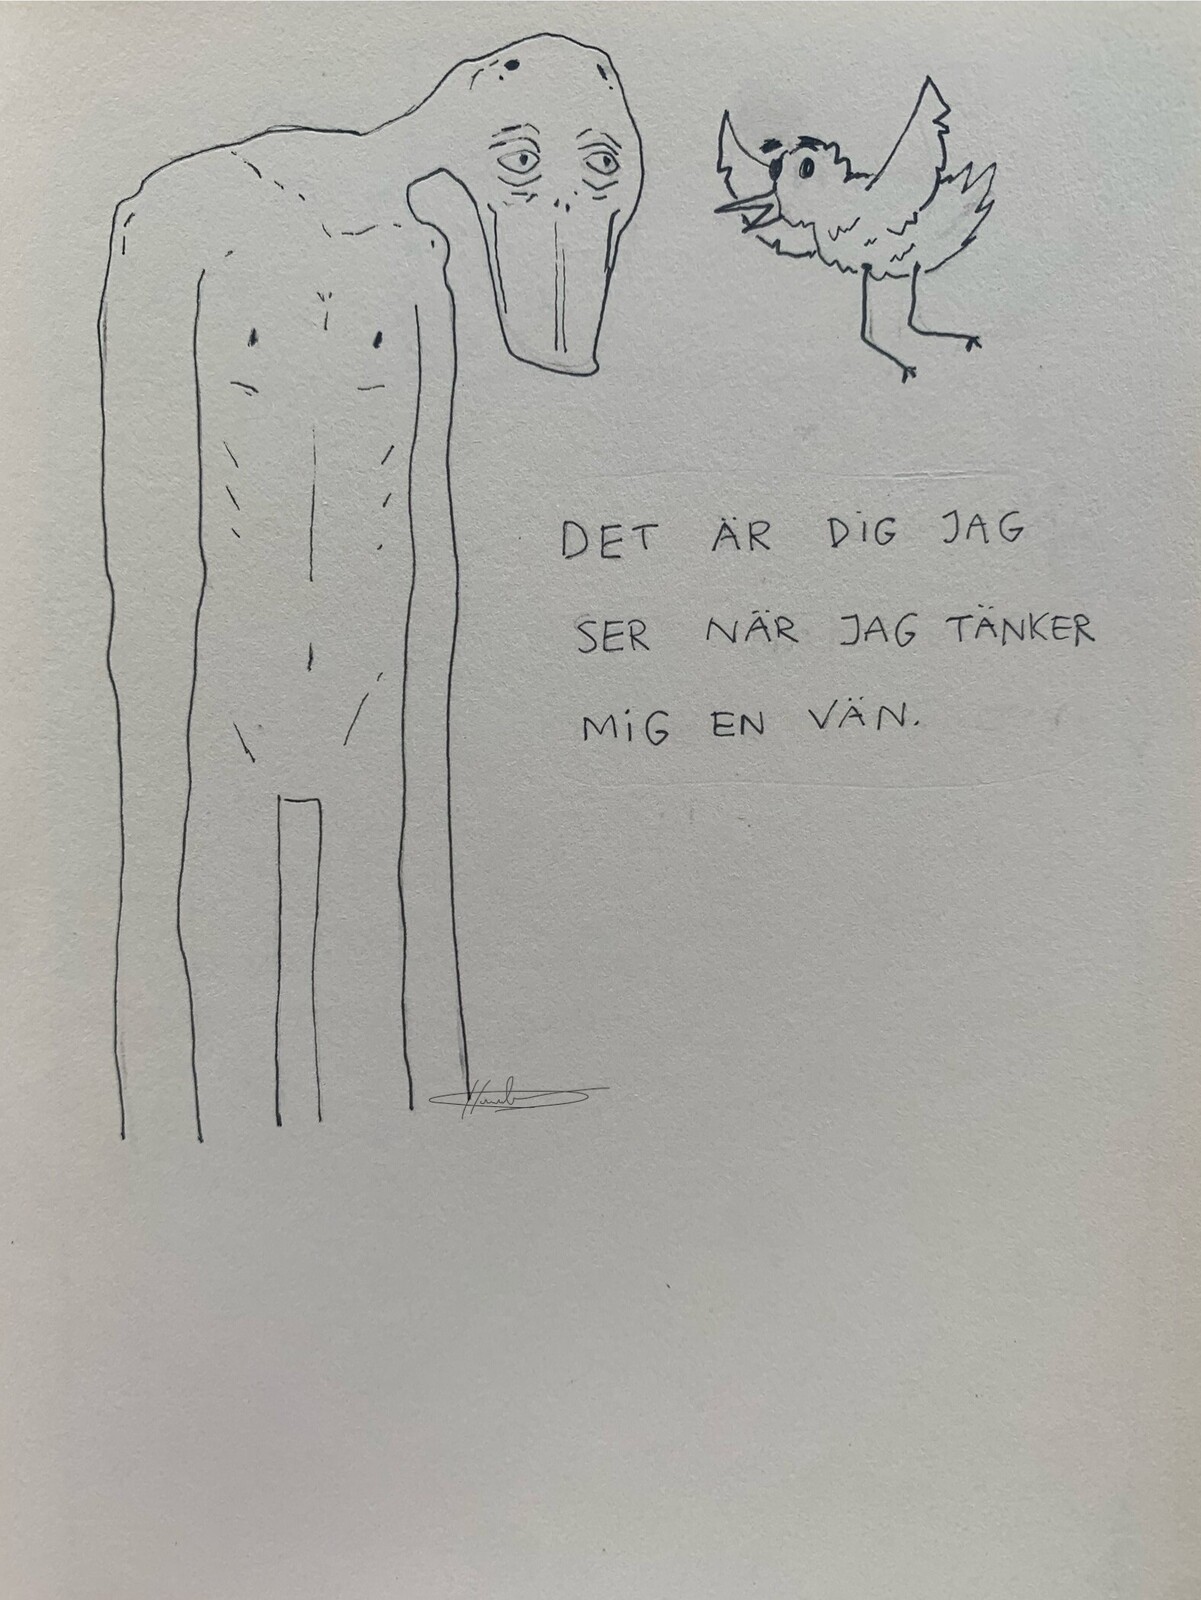 DET ÄR DIG JAG
SER NÄR JAG TÄNKER
MIG EN VÄN.